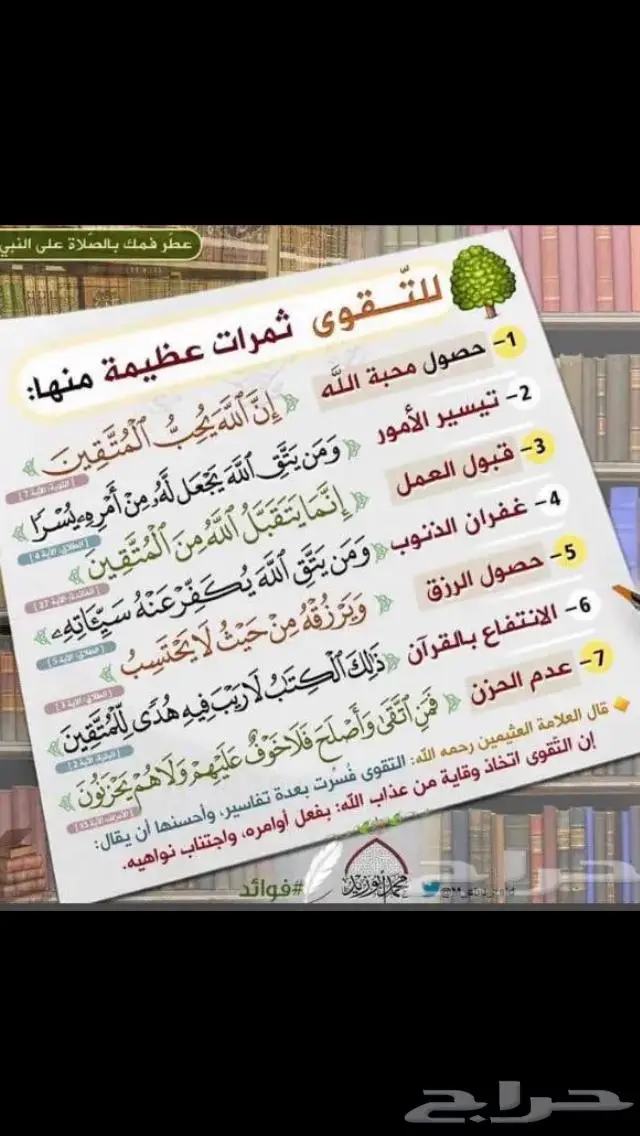 عطّر فمك بالصّلاة على النبي
للتّــقوى ثمرات عظيمة منها:
1- حصول محبة اللّه
﴿إِنَّ ٱللَّهَ يُحِبُّ ٱلْمُتَّقِينَ﴾
[التوبة: الآية 7]
2- تيسير الأمور
﴿وَمَن يَتَّقِ ٱللَّهَ يَجْعَل لَّهُۥ مِنْ أَمْرِهِۦ يُسْرًا﴾
[الطلاق: الآية 4]
3- قبول العمل
﴿إِنَّمَا يَتَقَبَّلُ ٱللَّهُ مِنَ ٱلْمُتَّقِينَ﴾
[المائدة: الآية 27]
4- غفران الذنوب
﴿وَمَن يَتَّقِ ٱللَّهَ يُكَفِّرْ عَنْهُ سَيِّـَٔاتِهِۦ﴾
[الطلاق: الآية 5]
5- حصول الرزق
﴿وَيَرْزُقْهُ مِنْ حَيْثُ لَا يَحْتَسِبُ﴾
[الطلاق: الآية 3]
6- الانتفاع بالقرآن
﴿ذَٰلِكَ ٱلْكِتَٰبُ لَا رَيْبَ فِيهِ هُدًى لِّلْمُتَّقِينَ﴾
[البقرة: الآية 2]
7- عدم الحزن
﴿فَمَنِ ٱتَّقَىٰ وَأَصْلَحَ فَلَا خَوْفٌ عَلَيْهِمْ وَلَا هُمْ يَحْزَنُونَ﴾
[الأعراف: الآية 35]
قال العلامة العثيمين رحمه اللّه: التقوى فُسّرت بعدة تفاسير، وأحسنها أن يقال:
إن التّقوى اتخاذ وقاية من عذاب اللّه: بفعل أوامره، واجتناب نواهيه.
#فوائد
محمد أبو زيد
حراج
حراج